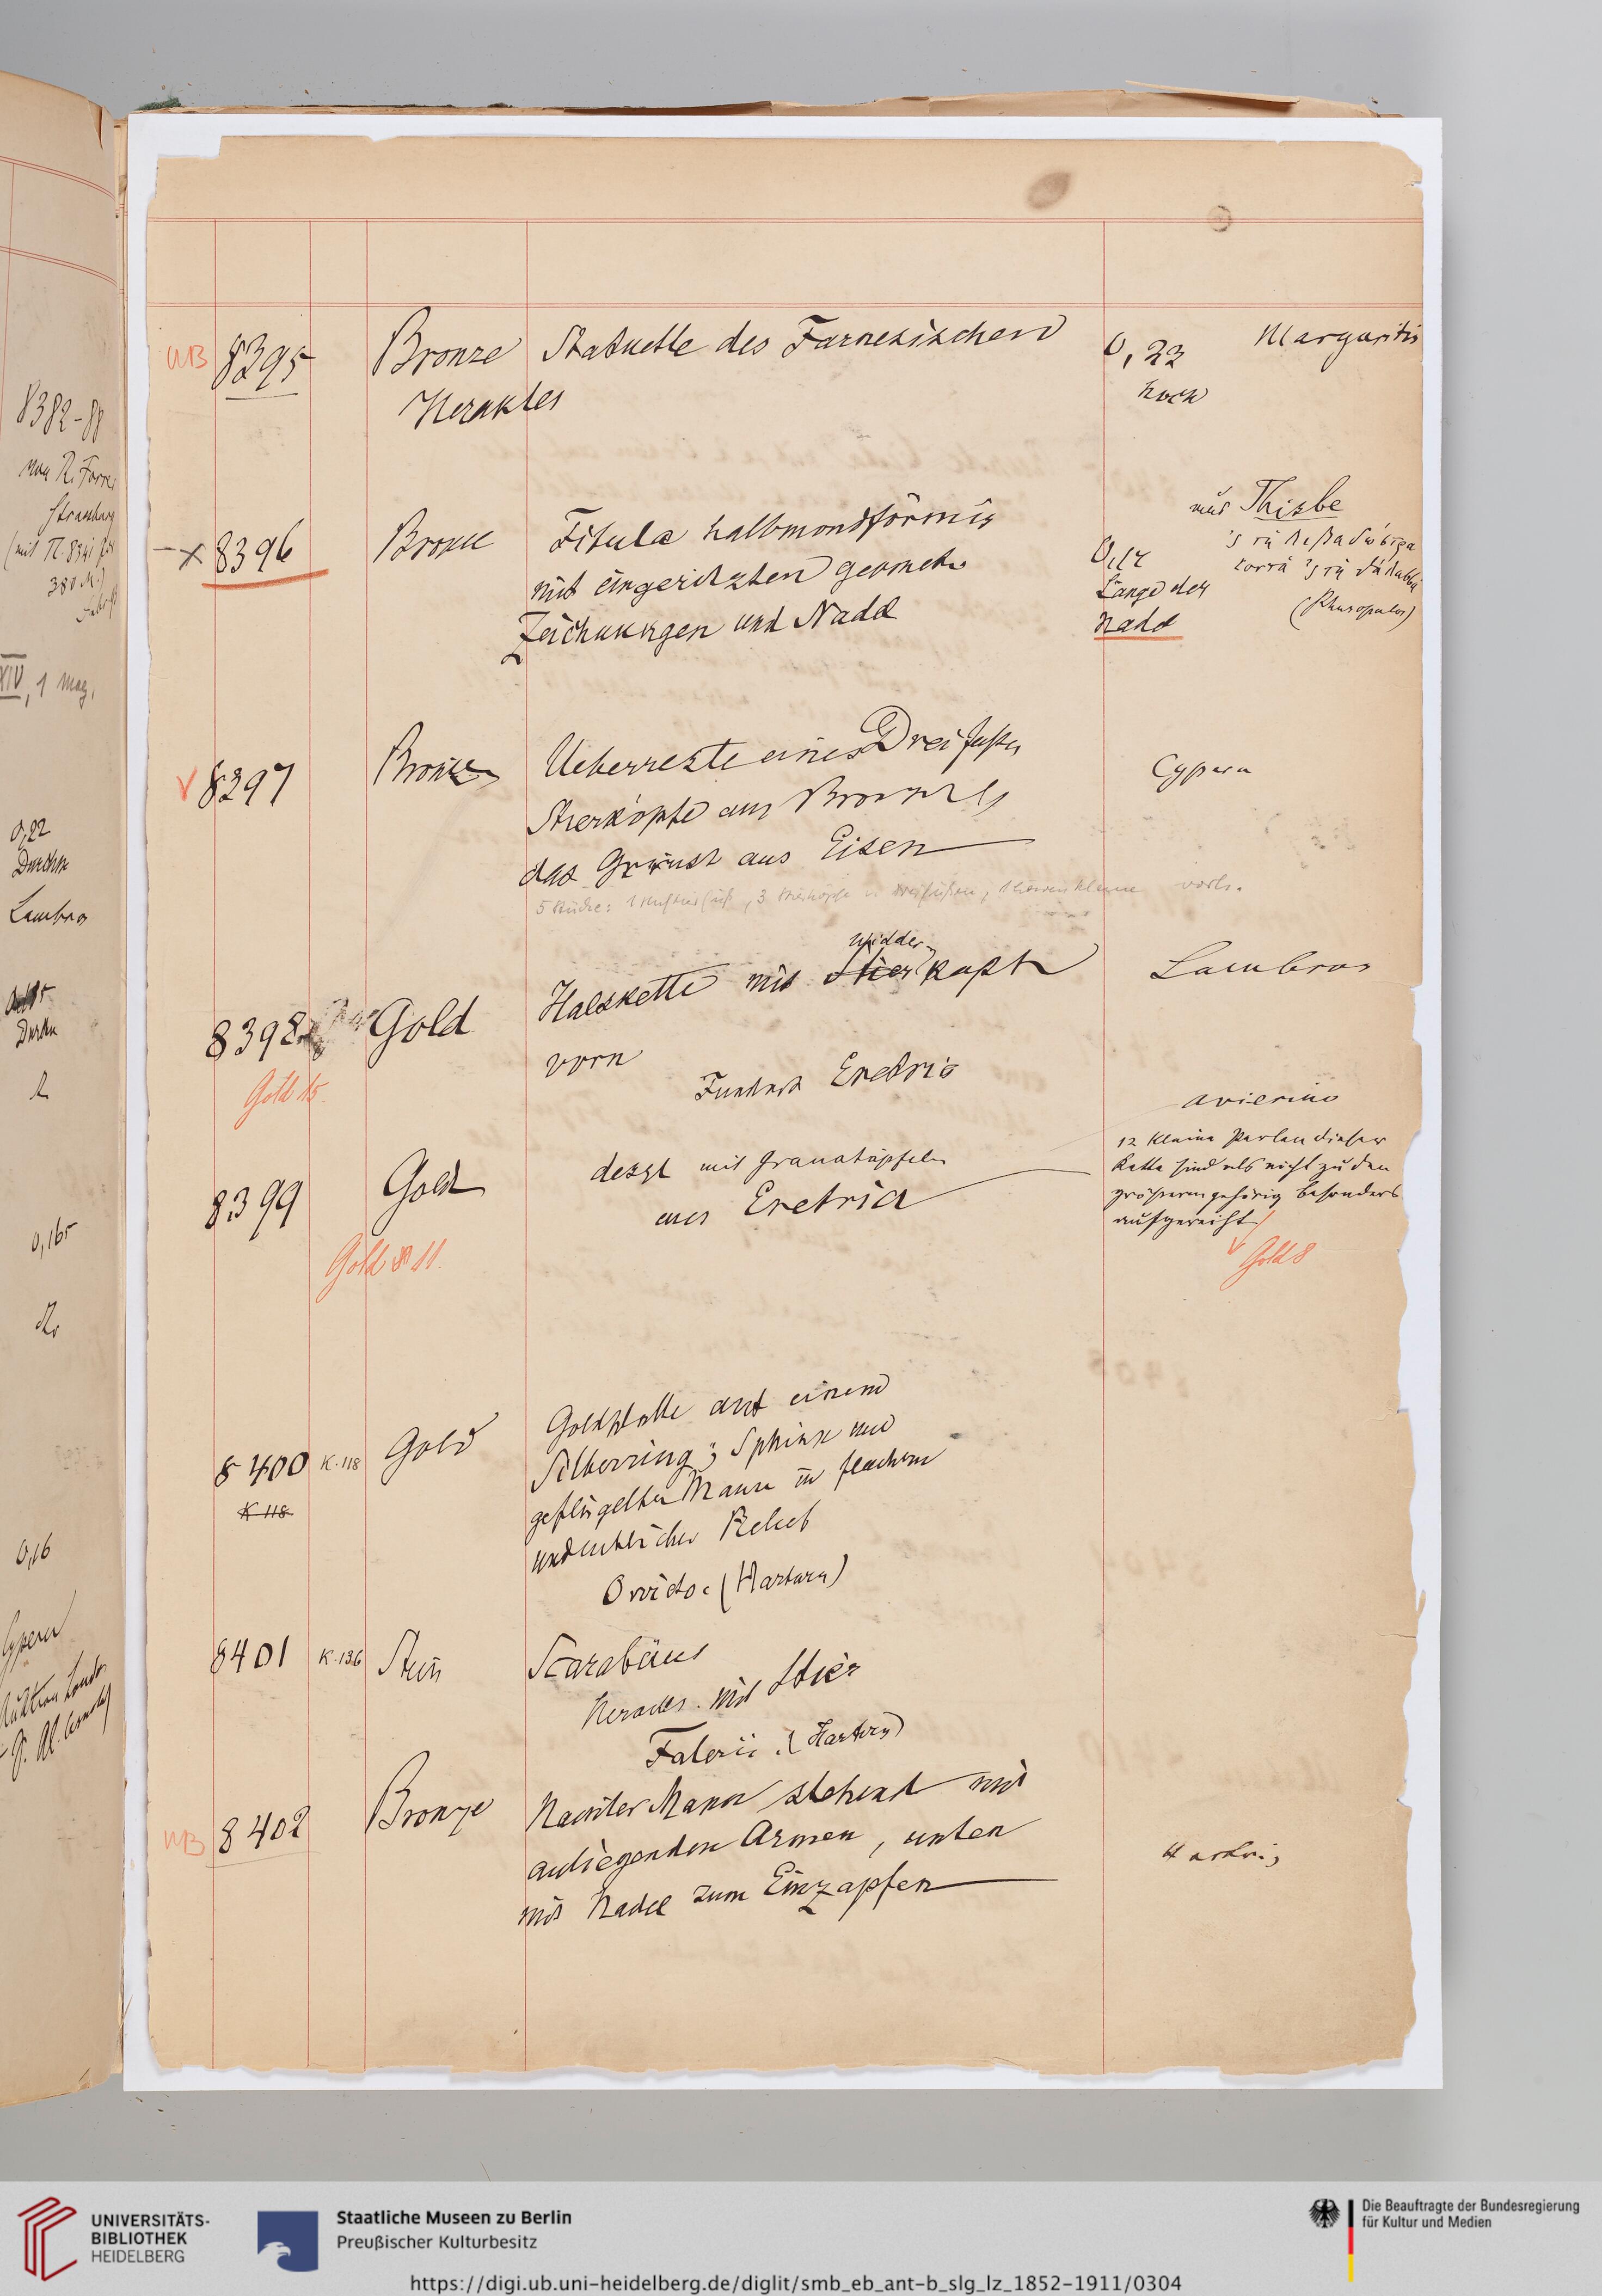 8382-88
von R. Forrer
Strassburg
XIV, 1 Mag.
0,22
Durchm
Lambros
0,165
0,16
Cypern
MB 8395 Bronze Statuette des Farnesischen 0,22 Margaritis
Herakles hoch
aus Thisbe
–x 8396 Bronze Fibula halbmondförmig
mit eingeritzten geometr. Länge der (Rhusopulos)
Zeichnungen und Nadel Nadel
v 8397 Bronze Ueberreste eines Dreifußes Cypern
Stierköpfe aus Bronze
das Gerüst aus Eisen
5 Stücke: 3 Stierköpfe vorh.
Widder
8398 Gold Halskette mit Stierkopf Lambros
vorn
Gold 15. Fundort Eretria
avierino
8399 Gold desgl mit Granatäpfeln
aus Eretria
12 kleine Perlen dieser
Kette sind als nicht zu den
größeren gehörig besonders
aufgereiht
Gold 11. Gold 8
8400 K.118 Gold Goldplatte auf einem
K 118 Silberring; Sphinx und
geflügelter Mann in flachem
undeutlichem Relief
Orvieto. (Hartwig)
8401 K.136 Stein Scarabäus
Heracles mit Stier
Falerii. (Hartwig)
MB 8402 Bronze Nackter Mann stehend mit
anliegenden Armen, unten Hartwig
mit Nadel zum Einzapfen
UNIVERSITÄTS-
BIBLIOTHEK
HEIDELBERG
Staatliche Museen zu Berlin
Preußischer Kulturbesitz
Die Beauftragte der Bundesregierung
für Kultur und Medien
https://digi.ub.uni-heidelberg.de/diglit/smb_eb_ant-b_slg_lz_1852-1911/0304